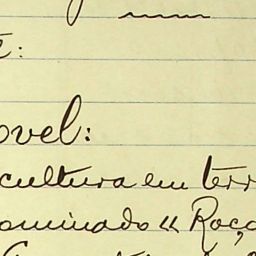 ovel:
cultura em terr
ominado " Roça